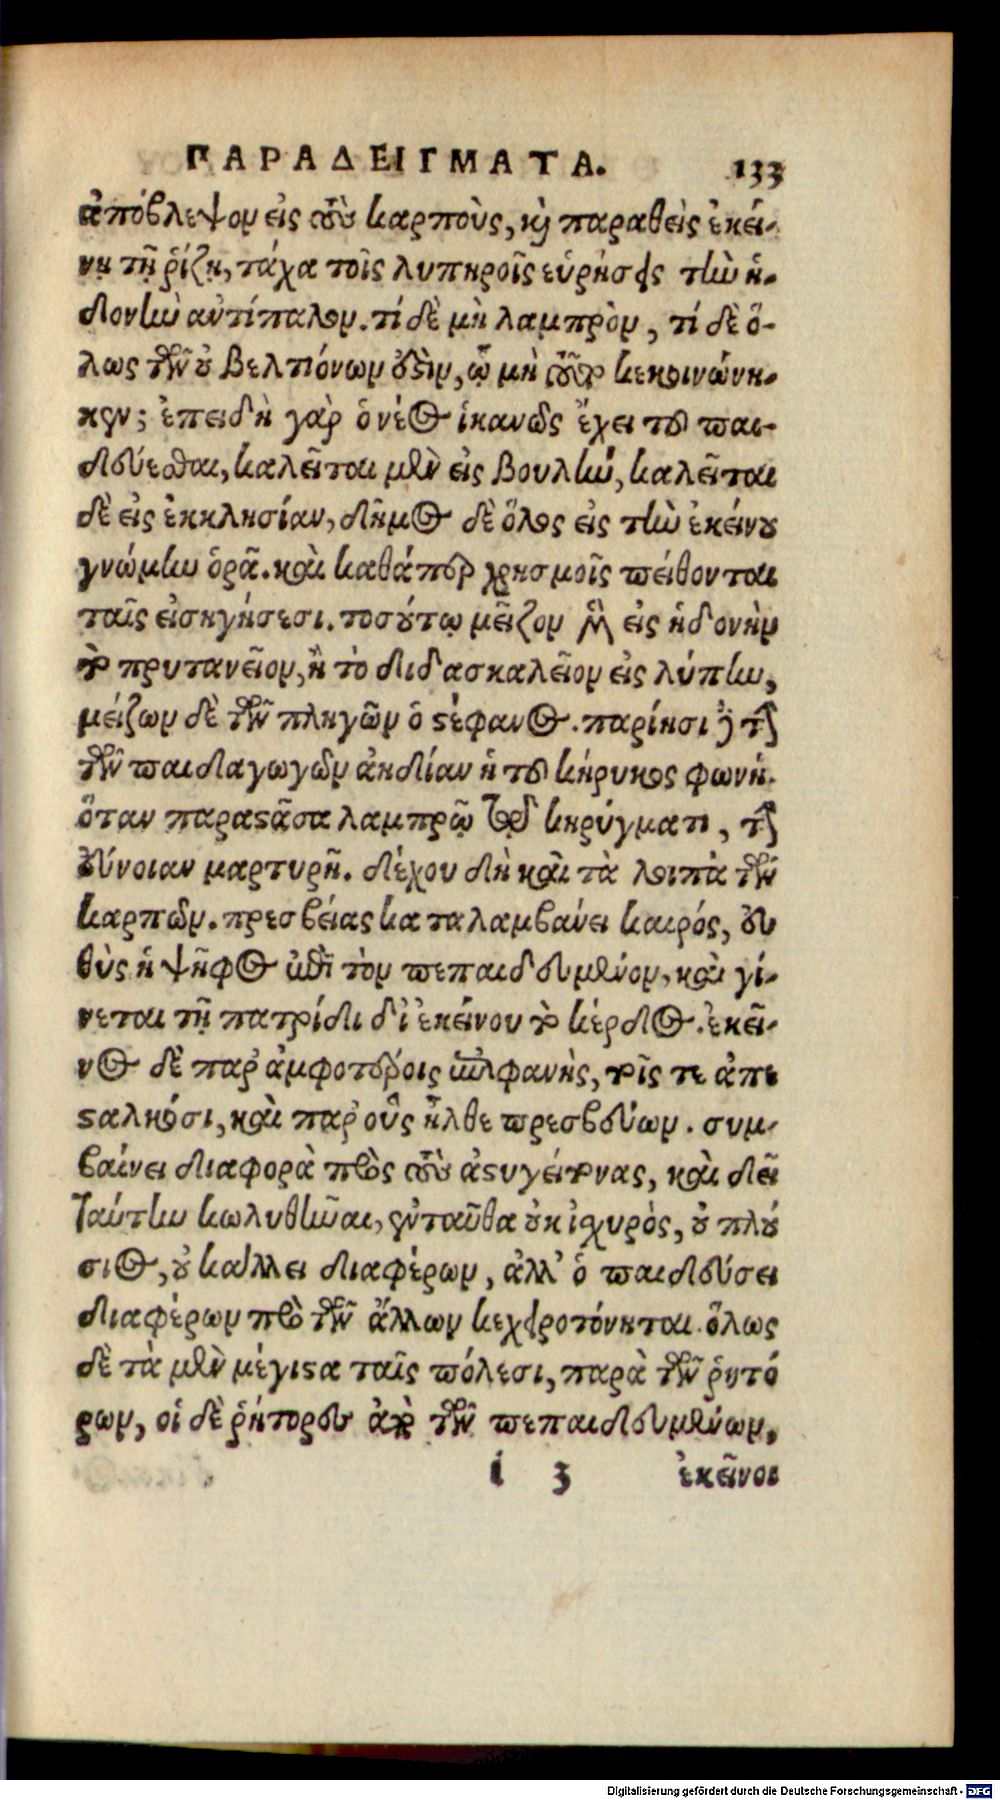 ΠΑΡΑΔΕΙΓΜΑΤΑ. 133
ἀπόβλεψον εἰς τοὺς καρποὺς, καὶ παραθεὶς ἐκεί-
νῃ τῇ ῥίζῃ, τάχα τοῖς λυπηροῖς εὑρήσεις τὴν ἡ-
δονὴν ἀντίπαλον. τί δὲ μὴ λαμπρὸν, τί δὲ ὅ-
λως τῶν οὐ βελτιόνων οὐδὲν, ᾧ μὴ κεκοινώνη-
κεν; ἐπειδὴ γὰρ ὁ νέος ἱκανῶς ἔχει τοῦ παι-
δεύεσθαι, καλεῖται μὲν εἰς βουλὴν, καλεῖται
δὲ εἰς ἐκκλησίαν, δῆμος δὲ ὅλος εἰς τὴν ἐκείνου
γνώμην ὁρᾷ. καὶ καθάπερ χρησμοῖς πείθονται
ταῖς εἰσηγήσεσι. τοσούτῳ μεῖζον εἰς ἡδονὴν
τὸ πρυτανεῖον, ἢ τὸ διδασκαλεῖον εἰς λύπην,
μείζων δὲ τῶν πληγῶν ὁ στέφανος. παρίησι τὴν
τῶν παιδαγωγῶν ἀηδίαν ἡ τοῦ κήρυκος φωνή.
ὅταν παραστᾶσα λαμπρῷ τῷ κηρύγματι, τὴν
εὔνοιαν μαρτυρῇ. δέχου δὴ καὶ τὰ λοιπὰ τῶν
καρπῶν. πρεσβείας καταλαμβάνει καιρός, εὐ
θὺς ἡ ψῆφος ἐπὶ τὸν πεπαιδευμένον, καὶ γί-
νεται τῇ πατρίδι δι' ἐκείνου τὸ κέρδος. ἐκεῖ-
νος δὲ παρ' ἀμφοτέροις ἐπιφανὴς, τοῖς τε ἀπε
σταλκόσι, καὶ παρ' οὓς ἦλθε πρεσβεύων. συμ-
βαίνει διαφορὰ πρὸς τοὺς ἀστυγείτονας, καὶ δεῖ
ταύτην κωλυθῆναι, ἐνταῦθα οὐκ ἰσχυρὸς, οὐ πλού
σιος, οὐ κάλλει διαφέρων, ἀλλ' ὁ παιδεύσει
διαφέρων πρὸ τῶν ἄλλων κεχειροτόνηται. ὅλως
δὲ τὰ μὲν μέγιστα ταῖς πόλεσι, παρὰ τῶν ῥητό
ρων, οἱ δὲ ῥήτορες ἀπὸ τῶν πεπαιδευμένων,
i 3 ἐκεῖνοι
Digitalisierung gefördert durch die Deutsche Forschungsgemeinschaft - DFG